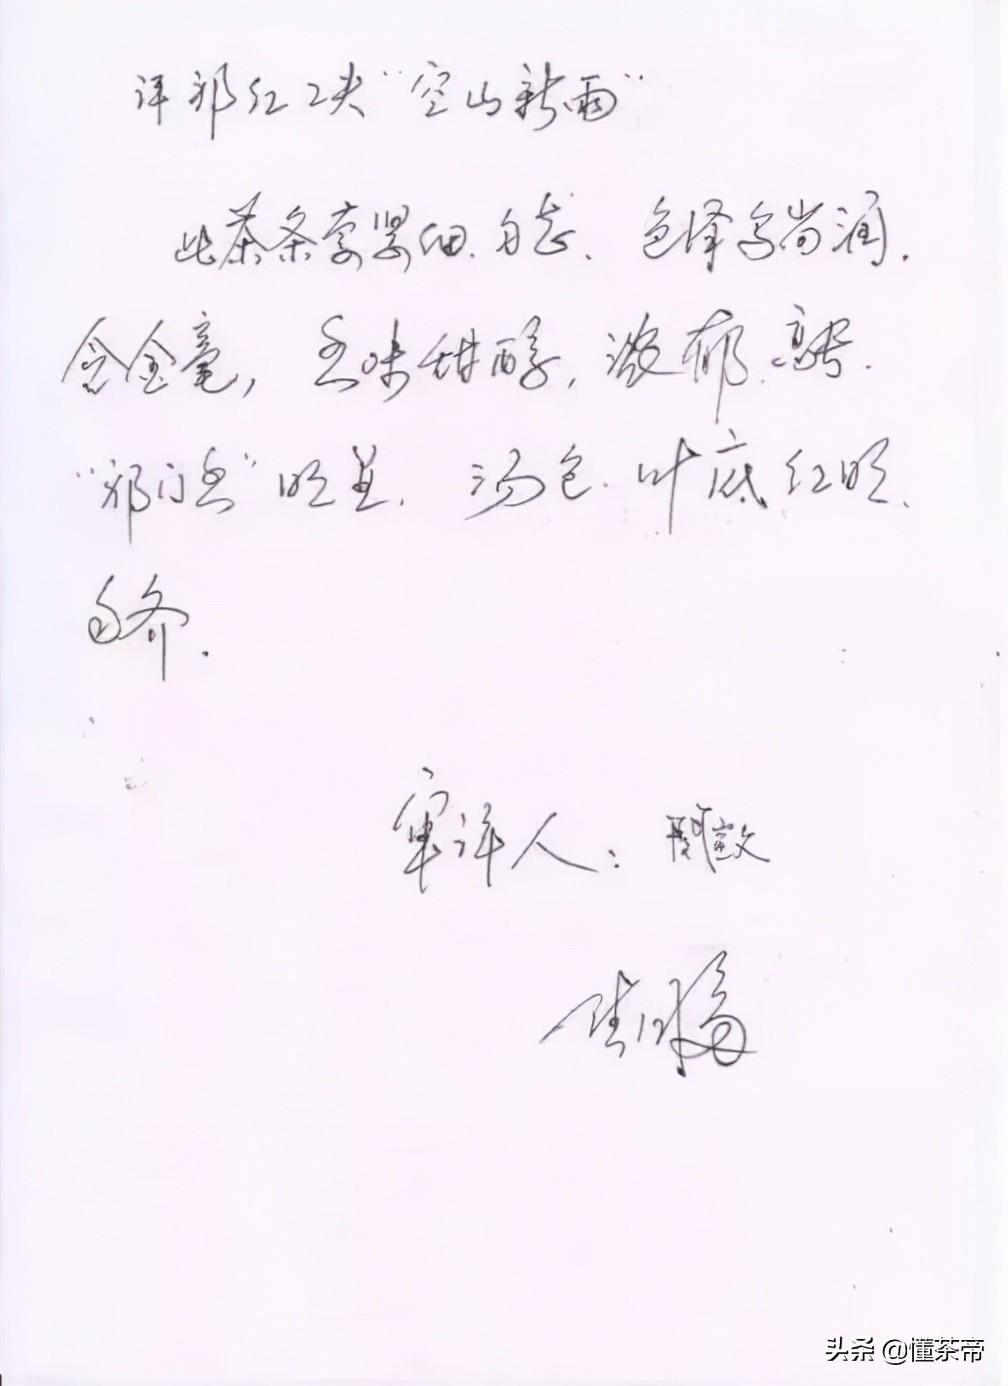 评祁红工夫“空山新雨”
此茶条索紧细、匀整、色泽乌尚润、
含金毫，香味甜醇，浓郁、高长.
“祁门香”明显. 汤色、叶底红明、
匀齐.
审评人：
头条 @懂茶帝